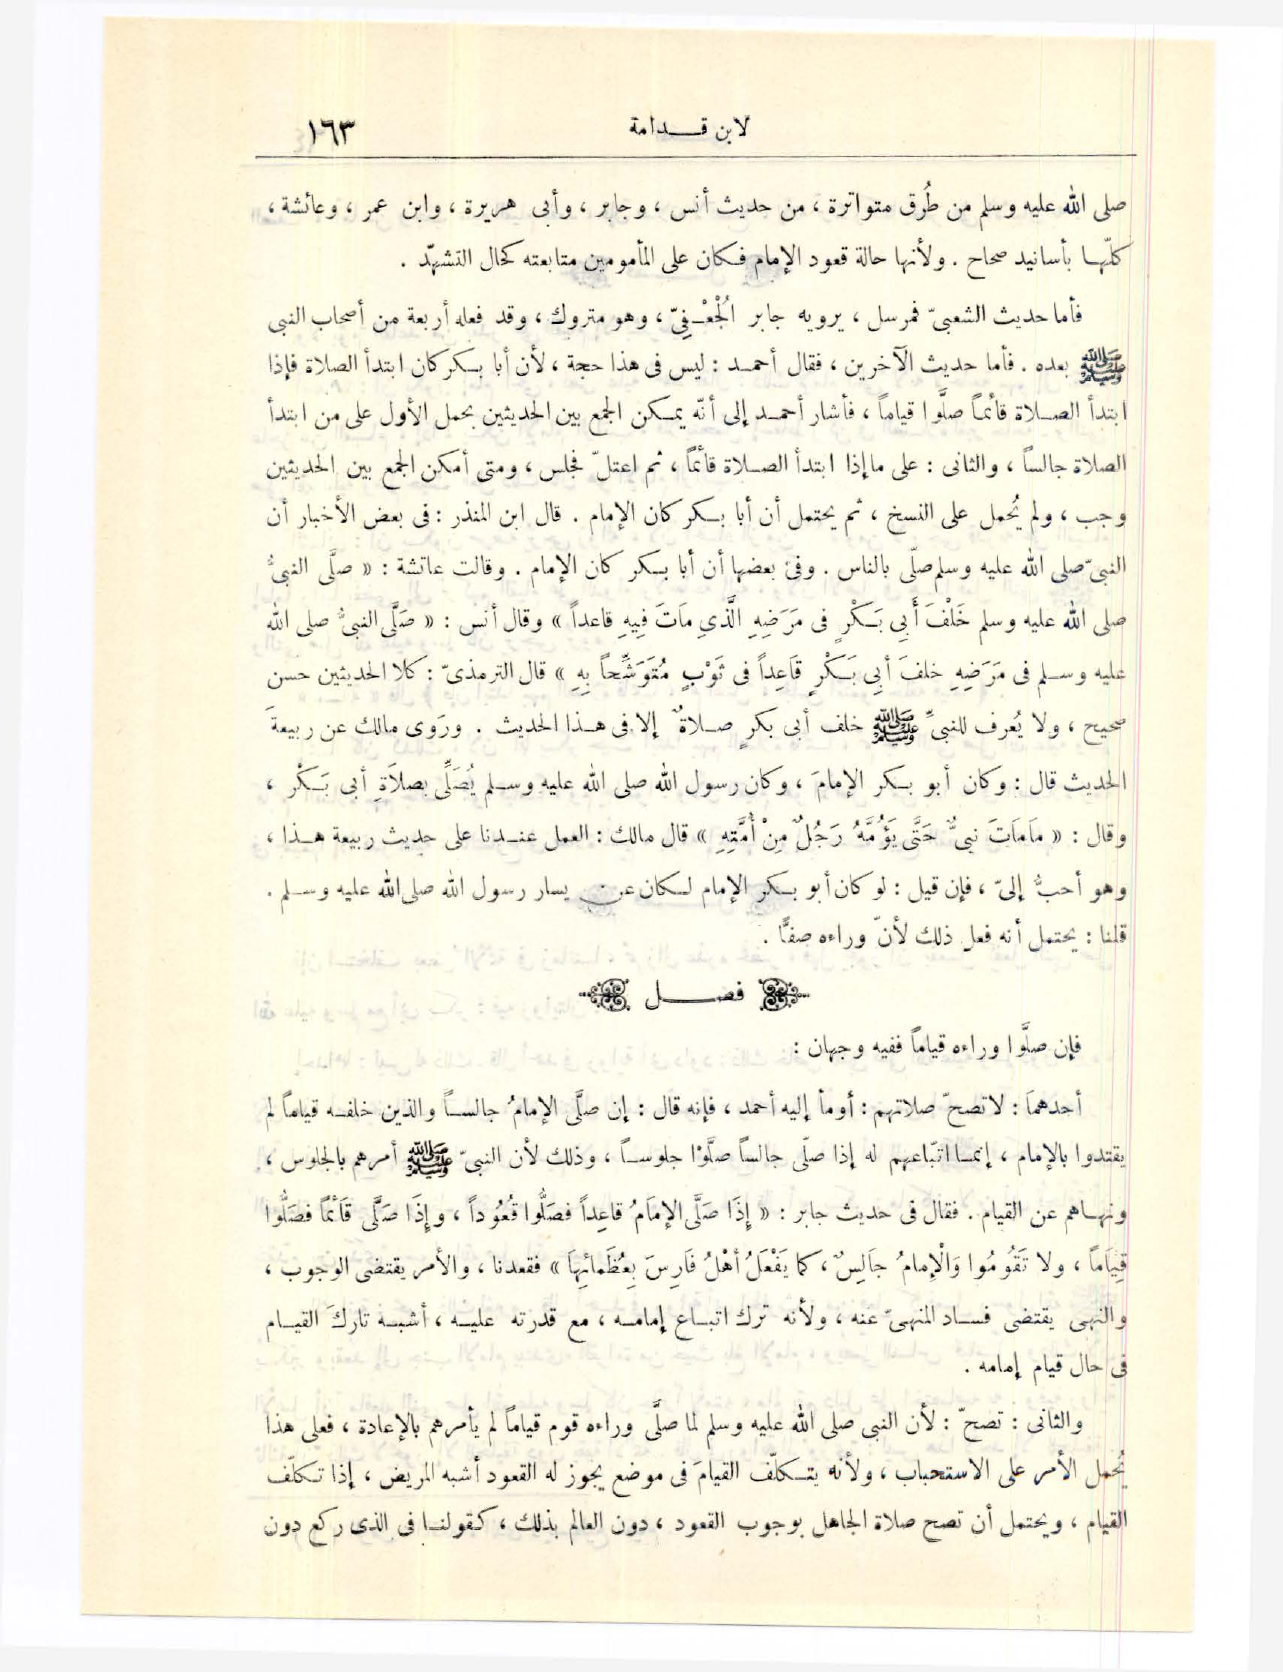 لابن قدامة
١٦٣
صلى الله عليه وسلم من طُرق متواترة ، من حديث أنس ، وجابر ، وأبى هريرة ، وابن عمر ، وعائشة ،
كلّها بأسانيد صحاح . ولأنها حالة قعود الإمام فكان على المأمومين متابعته كحال التشهّد .
فأما حديث الشعبىّ فمرسل ، يرويه جابر الْجُعْفِىّ ، وهو متروك ، وقد فعله أربعة من أصحاب النبى
ﷺ بعده . فأما حديث الآخرين ، فقال أحمد : ليس فى هذا حجة ، لأن أبا بكر كان ابتدأ الصلاة فإذا
ابتدأ الصلاة قائماً صلَّوا قياماً ، فأشار أحمد إلى أنّه يمكن الجمع بين الحديثين بحمل الأول على من ابتدأ
الصلاة جالساً ، والثانى : على ما إذا ابتدأ الصلاة قائماً ، ثم اعتلّ فجلس ، ومتى أمكن الجمع بين الحديثين
وجب ، ولم يُحمل على النسخ ، ثم يحتمل أن أبا بكر كان الإمام . قال ابن المنذر : فى بعض الأخبار أن
النبىّ صلى الله عليه وسلم صلّى بالناس . وفى بعضها أن أبا بكر كان الإمام . وقالت عائشة : « صلَّى النبىُّ
صلى الله عليه وسلم خَلْفَ أَبِى بَكْرٍ فى مَرَضِهِ الَّذِى مَاتَ فِيهِ قاعداً » وقال أنس : « صَلَّى النبىُّ صلى الله
عليه وسلم فى مَرَضِهِ خلفَ أبِى بَكْرٍ قَاعِداً فى ثَوْبٍ مُتَوَشِّحاً بِهِ » قال الترمذىّ : كلا الحديثين حسن
صحيح ، ولا يُعرف للنبىِّ ﷺ خلف أبى بكرٍ صلاةٌ إلا فى هذا الحديث . ورَوى مالك عن ربيعةَ
الحديث قال : وكان أبو بكر الإمامَ ، وكان رسول الله صلى الله عليه وسلم يُصَلِّى بصلاَةِ أبى بَكْر ،
وقال : « مَامَاتَ نبىٌّ حَتَّى يَؤُمَّهُ رَجُلٌ مِنْ أُمَّتِهِ » قال مالك : العمل عندنا على حديث ربيعة هذا ،
وهو أحبُّ إلىّ ، فإن قيل : لو كان أبو بكر الإمام لكان عن يسار رسول الله صلى الله عليه وسلم .
قلنا : يحتمل أنه فعل ذلك لأنّ وراءه صفًّا .
فصل
فإن صلَّوا وراءه قياماً ففيه وجهان :
أحدهمَا : لاتصحّ صلاتهم : أومأ إليه أحمد ، فإنه قال : إن صلَّى الإمامُ جالساً والذين خلفه قياماً لم
يقتدوا بالإمام ، إنما اتّباعهم له إذا صلّى جالساً صلَّوْا جلوساً ، وذلك لأن النبىّ ﷺ أمرهم بالجلوس ،
ونهاهم عن القيام . فقال فى حديث جابر : « إِذَا صَلَّى الإمَامُ قاعِداً فصَلُّوا قُعُوداً ، وإِذَا صَلَّى قَائمًا فصَلُّوا
قِيَاماً ، ولا تَقُومُوا وَالْإِمامُ جَالِسٌ ، كما يَفْعَلُ أهْلُ فَارِسَ بِعُظَمائِهَا » فقعدنا ، والأمر يقتضى الوجوب ،
والنهى يقتضى فساد المنهىّ عنه ، ولأنه ترك اتباع إمامه ، مع قدرته عليه ، أشبه تاركَ القيام
فى حال قيام إمامه .
والثانى : تصحّ : لأن النبى صلى الله عليه وسلم لما صلَّى وراءه قوم قياماً لم يأمرهم بالإعادة ، فعلى هذا
يُحمل الأمر على الاستحباب ، ولأنه يتكلّف القيامَ فى موضع يجوز له القعود أشبه المريض ، إذا تكلّف
القيام ، ويحتمل أن تصح صلاة الجاهل بوجوب القعود ، دون العالم بذلك ، كقولنا فى الذى ركع دون